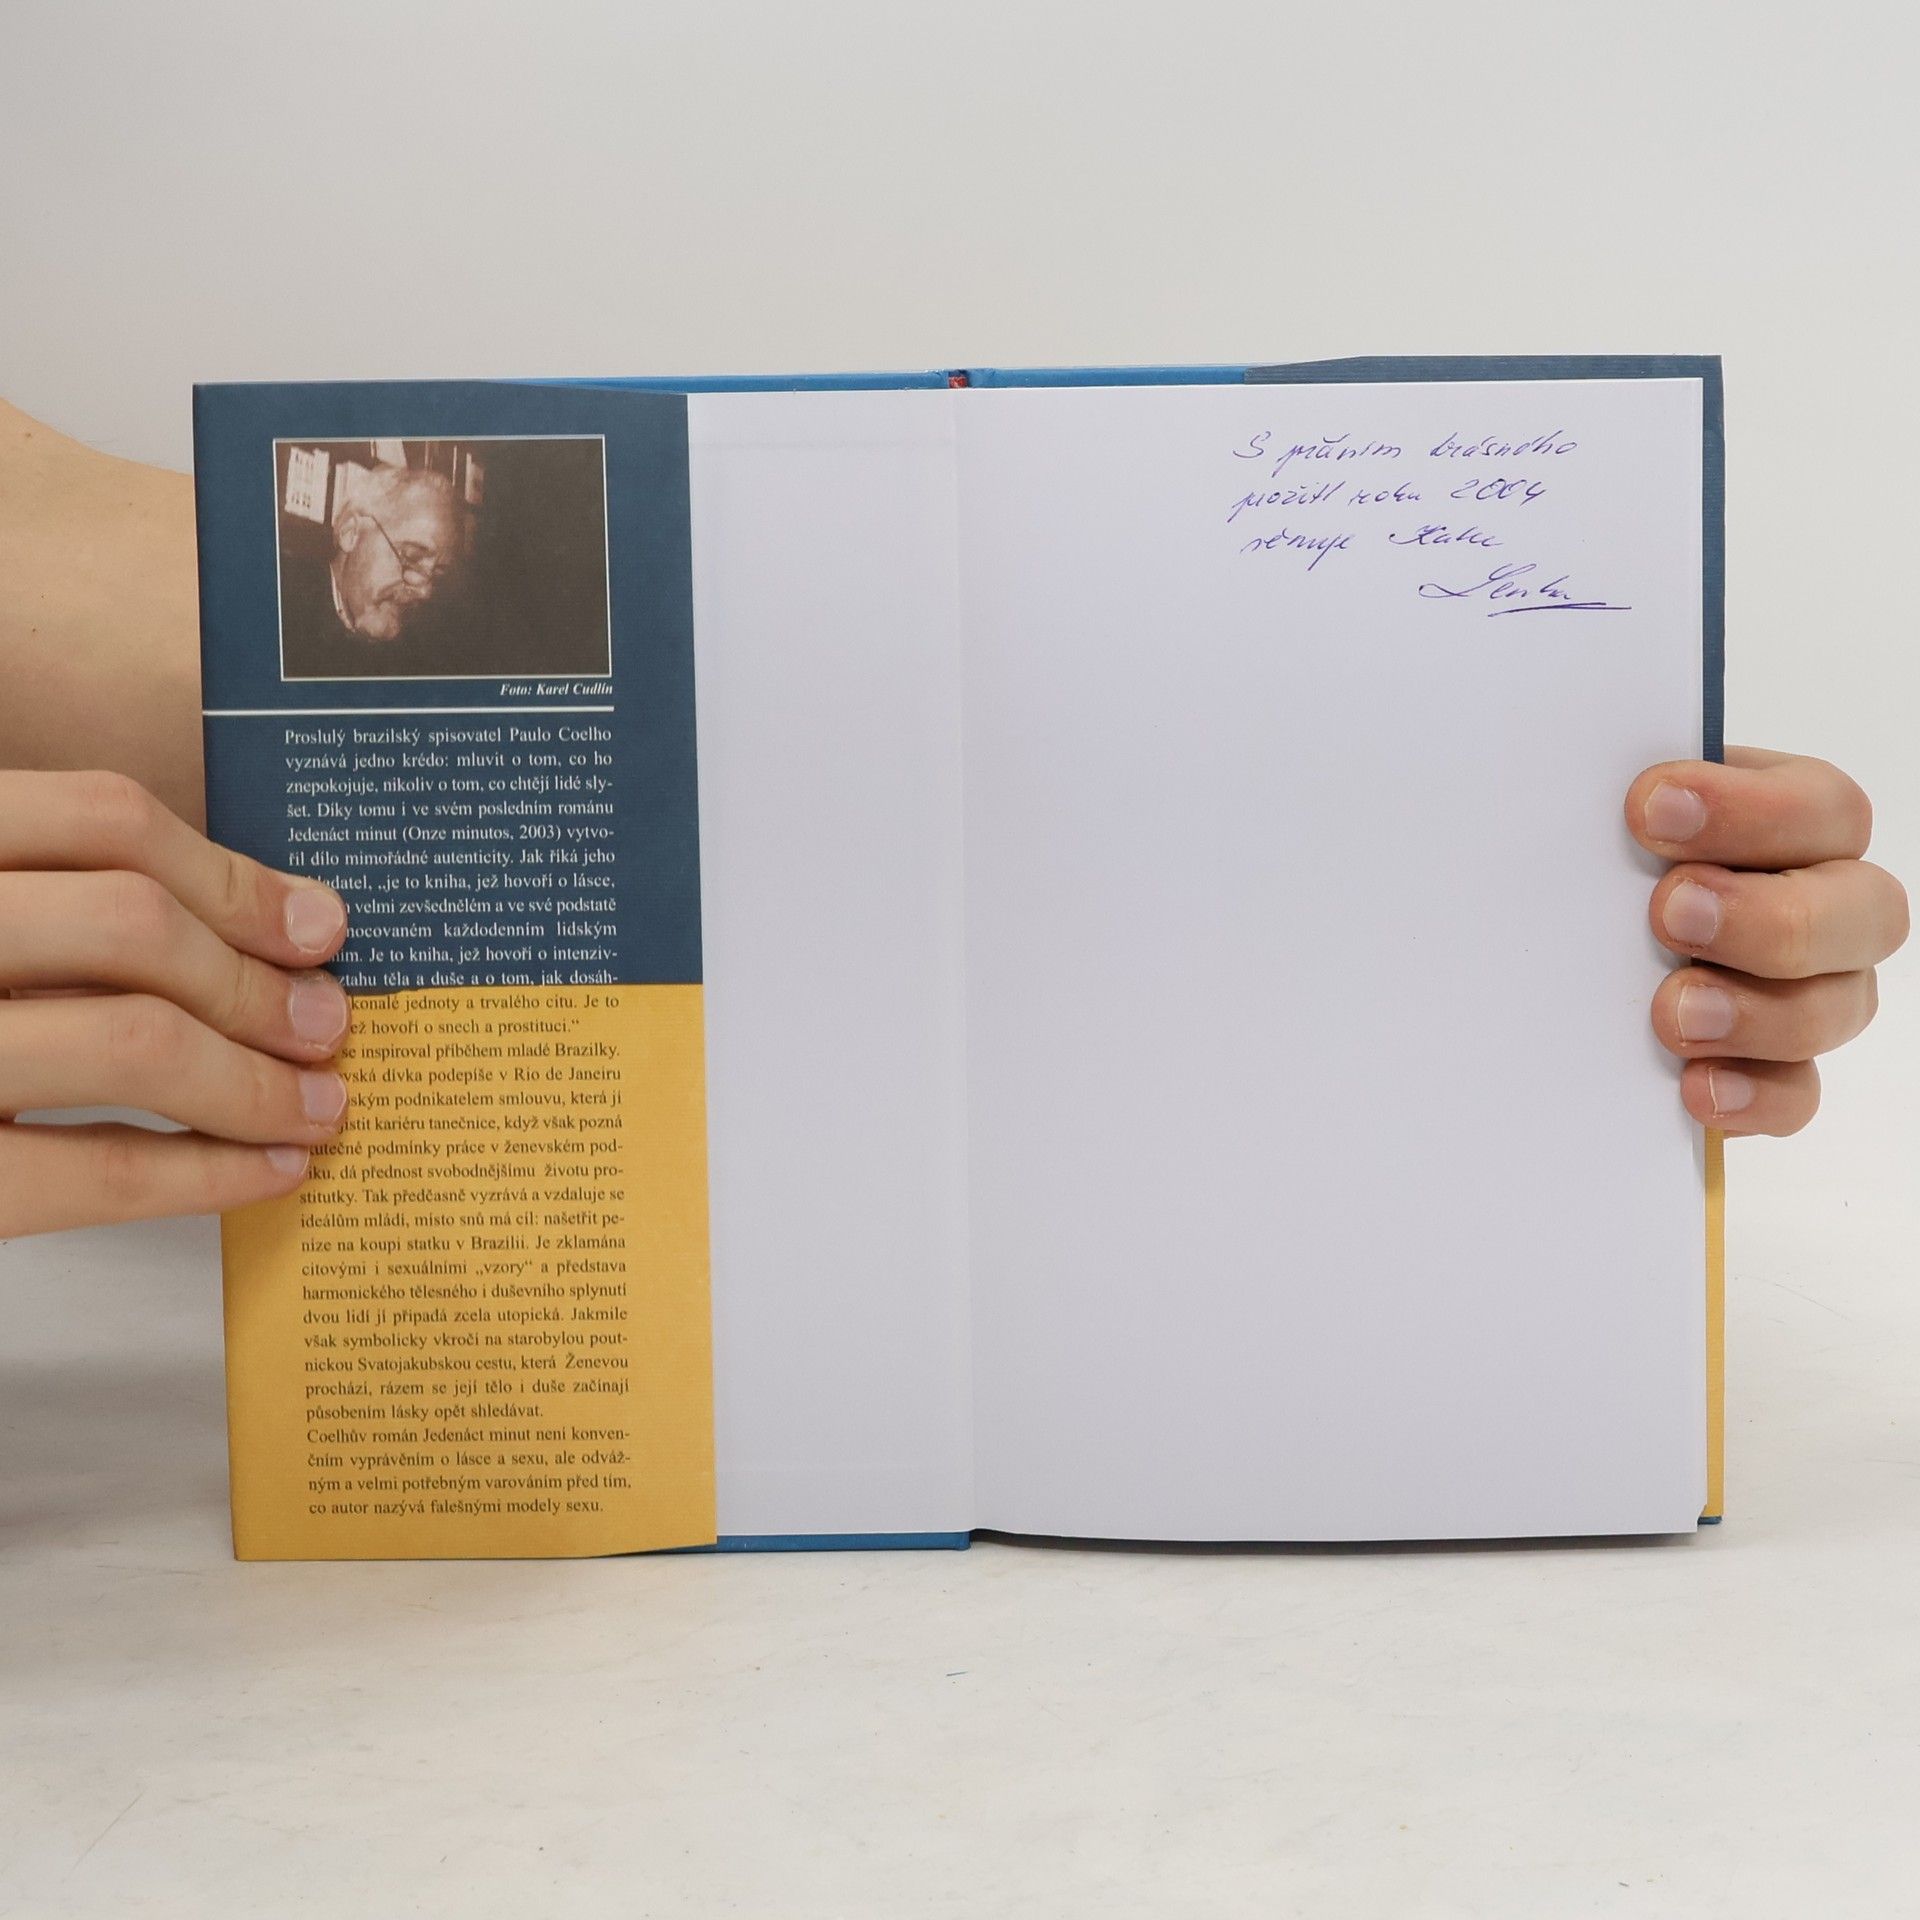 Foto: Karel Cudlín
Proslulý brazilský spisovatel Paulo Coelho
vyznává jedno krédo: mluvit o tom, co ho
znepokojuje, nikoliv o tom, co chtějí lidé sly-
šet. Díky tomu i ve svém posledním románu
Jedenáct minut (Onze minutos, 2003) vytvo-
řil dílo mimořádné autenticity. Jak říká jeho
ladatel, „je to kniha, jež hovoří o lásce,
velmi zevšednělém a ve své podstatě
nocovaném každodenním lidským
ním. Je to kniha, jež hovoří o intenziv-
ztahu těla a duše a o tom, jak dosáh-
konalé jednoty a trvalého citu. Je to
ež hovoří o snech a prostituci.“
se inspiroval příběhem mladé Brazilky.
vská dívka podepíše v Rio de Janeiru
ským podnikatelem smlouvu, která jí
jistit kariéru tanečnice, když však pozná
utečné podmínky práce v ženevském pod-
iku, dá přednost svobodnějšímu životu pro-
stitutky. Tak předčasně vyzrává a vzdaluje se
ideálům mládí, místo snů má cíl: našetřit pe-
níze na koupi statku v Brazílii. Je zklamána
citovými i sexuálními „vzory“ a představa
harmonického tělesného i duševního splynutí
dvou lidí jí připadá zcela utopická. Jakmile
však symbolicky vkročí na starobylou pout-
nickou Svatojakubskou cestu, která Ženevou
prochází, rázem se její tělo i duše začínají
působením lásky opět shledávat.
Coelhův román Jedenáct minut není konven-
čním vyprávěním o lásce a sexu, ale odváž-
ným a velmi potřebným varováním před tím,
co autor nazývá falešnými modely sexu.
S přáním krásného
prožití roku 2004
věnuje
Lenka